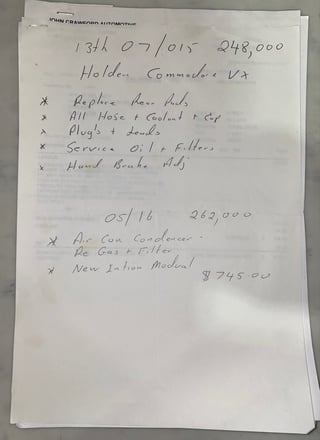 JOHN CRAWFORD AUTOMOTIVE
13th 07/015 248,000
Holden Commodore VX
* Replace Rear Pads
* All Hose + Coolant + Cap
* Plug's + Leads
* Service Oil + Filters
* Hand Brake Adj
05/16 262,000
* Air Con Condencer.
Re Gas + Filter
* New Intion Modual
$745.00